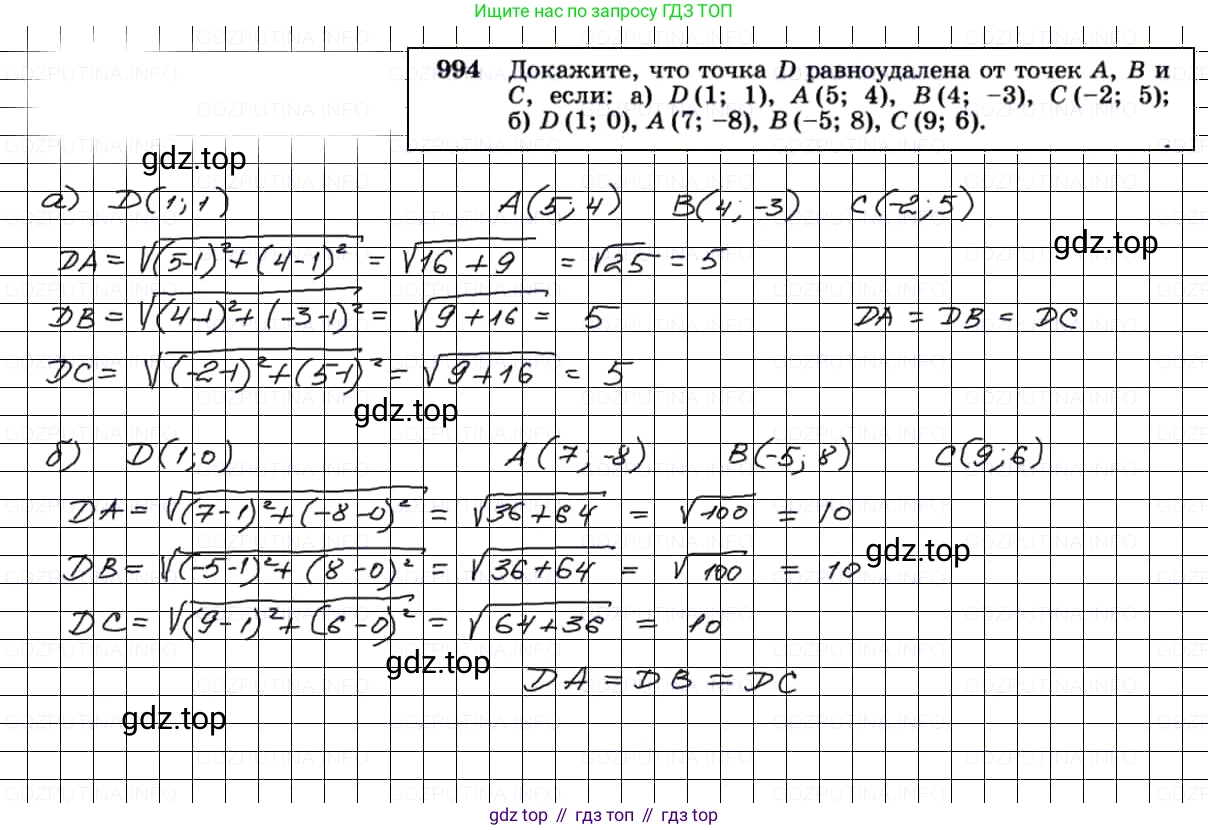 Ищите нас по запросу ГДЗ ТОП
994 Докажите, что точка D равноудалена от точек A, B и
C, если: а) D (1; 1), A (5; 4), B (4; −3), C (−2; 5);
б) D (1; 0), A (7; −8), B (−5; 8), C (9; 6).
gdz.top
а) D(1;1) A(5;4) B(4;-3) C(-2;5)
gdz.top
DA = √(5-1)²+(4-1)² = √16+9 = √25 = 5
DB = √(4-1)²+(-3-1)² = √9+16 = 5 DA = DB = DC
DC = √(-2-1)²+(5-1)² = √9+16 = 5
gdz.top
б) D(1;0) A(7;-8) B(-5;8) C(9;6)
DA = √(7-1)²+(-8-0)² = √36+64 = √100 = 10
gdz.top
DB = √(-5-1)²+(8-0)² = √36+64 = √100 = 10
DC = √(9-1)²+(6-0)² = √64+36 = 10
gdz.top
DA = DB = DC
gdz.top
gdz top // гдз топ // gdz top